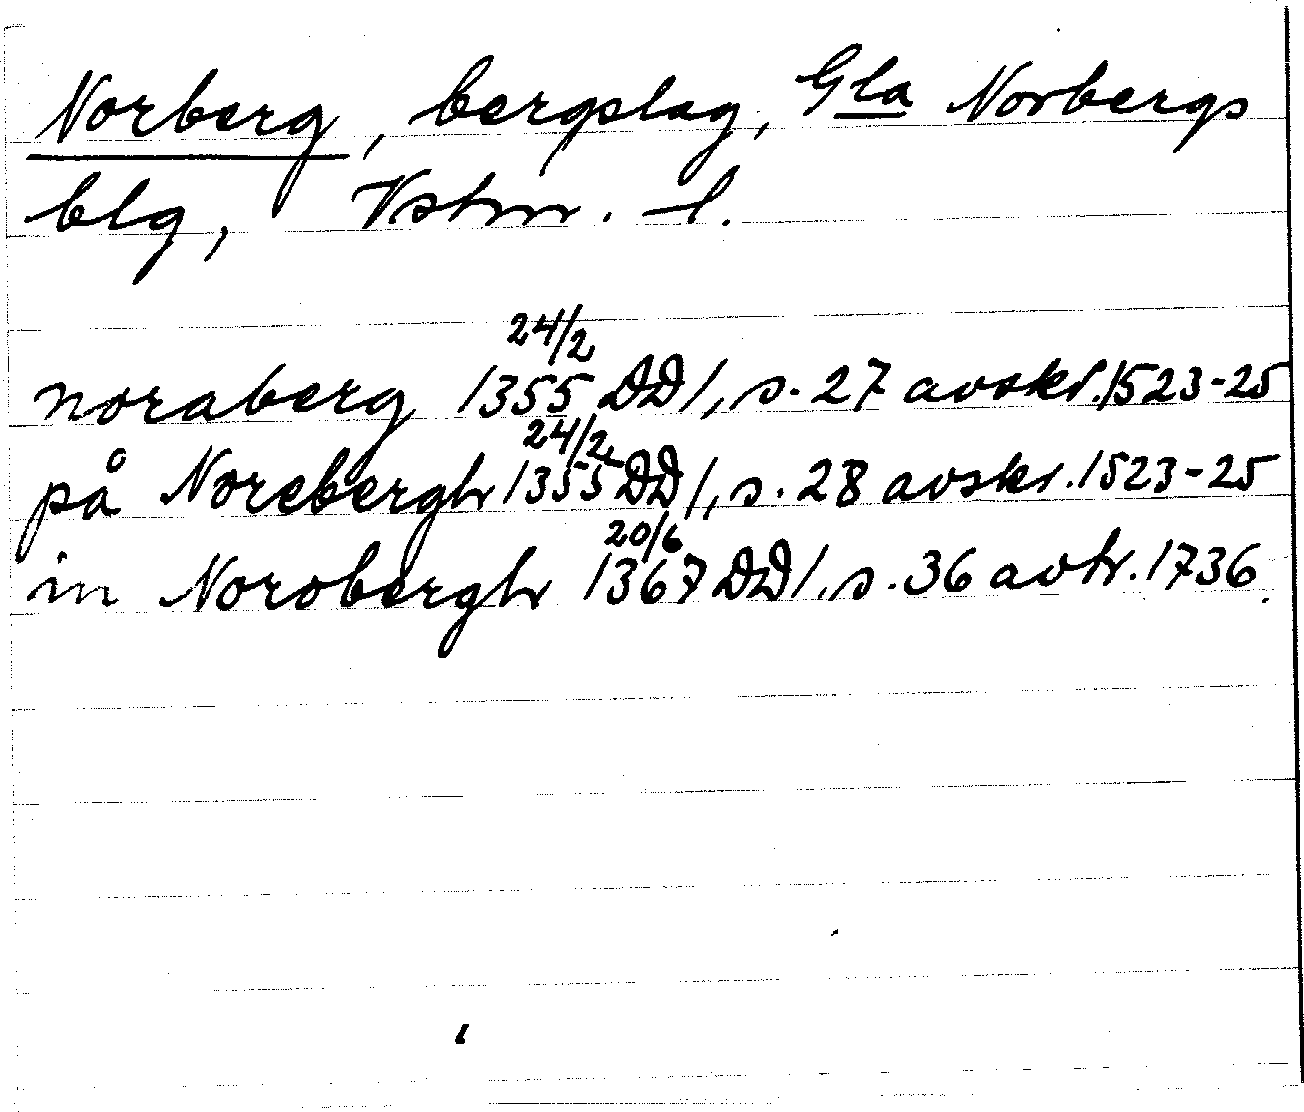 Norberg, bergslag, Gla Norbergs
blg, Vstm. l.
noraberg 1355 24/2 DD 1, s. 27 avskr. 1523-25
på Norebergh 1355 24/2 DD 1, s. 28 avskr. 1523-25
in Norobergh 1367 20/6 DD 1, s. 36 avtr. 1736.